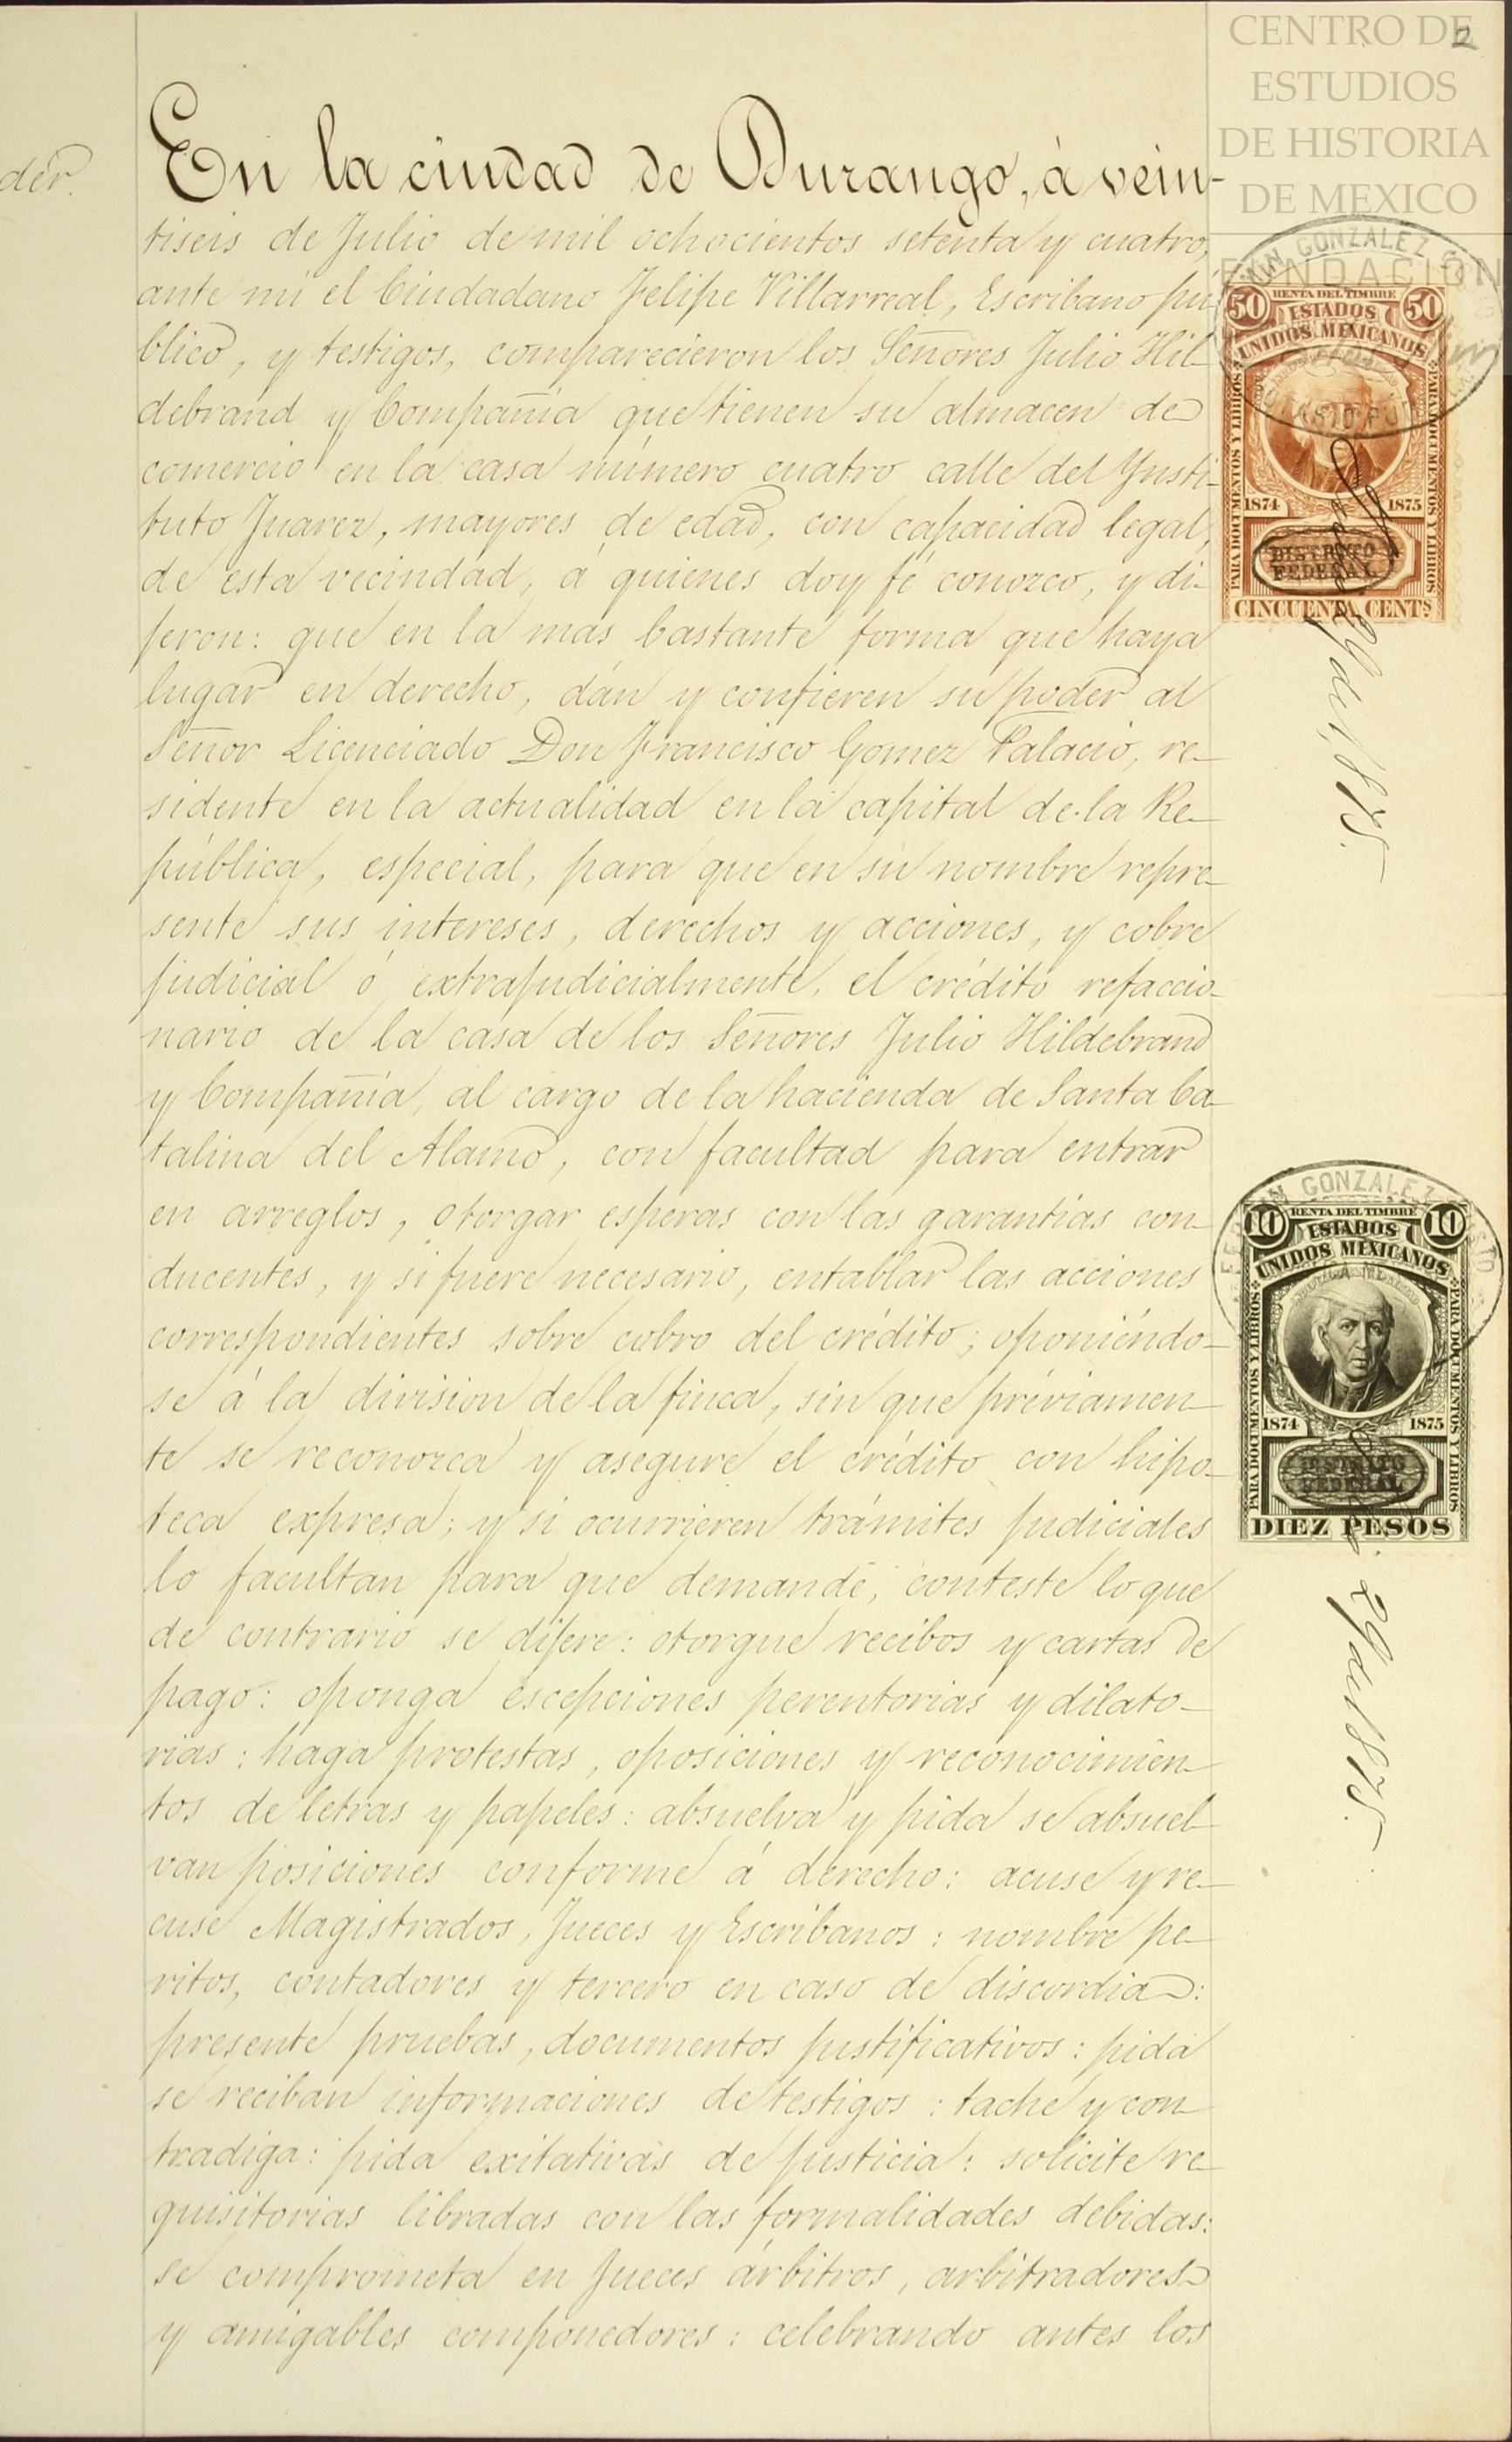 CENTRO DE
ESTUDIOS
DE HISTORIA
DE MEXICO
FUNDACIÓN
2
der.
En la ciudad de Durango, á vein-
tiseis de Julio de mil ochocientos setenta y cuatro,
ante mi el Ciudadano Felipe Villarreal, Escribano pú-
blico, y testigos, comparecieron los Señores Julio Hil-
debrand y Compañía que tienen su almacen de
comercio en la casa número cuatro calle del Ynsti-
tuto Juarez, mayores de edad, con capacidad legal,
de esta vecindad, á quienes doy fé conozco, y di-
jeron: que en la mas bastante forma que haya
lugar en derecho, dán y confieren su poder al
Señor Licenciado Don Francisco Gomez Palacio, re-
sidente en la actualidad en la capital de la Re-
pública, especial, para que en su nombre repre-
sente sus intereses, derechos y acciones, y cobre
judicial ó extrajudicialmente, el crédito refaccio-
nario de la casa de los Señores Julio Hildebrand
y Compañía, al cargo de la hacienda de Santa Ca-
talina del Alamo, con facultad para entrar
en arreglos, otorgar esperas con las garantías con-
ducentes, y si fuere necesario, entablar las acciones
correspondientes sobre cobro del crédito; oponiéndo-
se á la division de la finca, sin que préviamen-
te se reconozca y asegure el crédito con hipo-
teca expresa; y si ocurrieren trámites judiciales
lo facultan para que demande, conteste lo que
de contrario se dijere: otorgue recibos y cartas de
pago: oponga escepciones perentorias y dilato-
rias: haga protestas, oposiciones y reconocimien-
tos de letras y papeles: absuelva y pida se absuel-
van posiciones conforme á derecho: acuse y re-
cuse Magistrados, Jueces y Escribanos: nombre pe-
ritos, contadores y tercero en caso de discordia:
presente pruebas, documentos justificativos: pida
se reciban informaciones de testigos: tache y con-
tradiga: pida exitativas de justicia: solicite re-
quisitorias libradas con las formalidades debidas:
se comprometa en Jueces árbitros, arbitradores
y amigables componedores: celebrando antes los
GONZALEZ
50 RENTA DEL TIMBRE 50
ESTADOS
UNIDOS MEXICANOS
PARA DOCUMENTOS Y LIBROS
PARA DOCUMENTOS Y LIBROS
1874 1875
DISTRITO
FEDERAL
CINCUENTA CENTS
1875.
GONZALEZ
10 RENTA DEL TIMBRE 10
ESTADOS
UNIDOS MEXICANOS
PARA DOCUMENTOS Y LIBROS
PARA DOCUMENTOS Y LIBROS
1874 1875
DISTRITO
FEDERAL
DIEZ PESOS
1875.